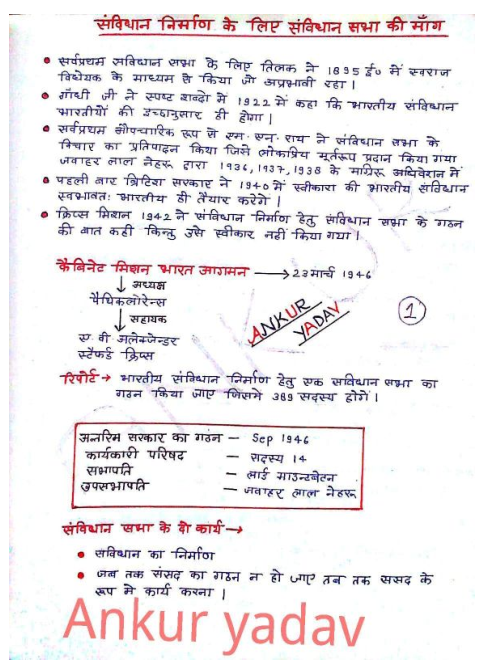 संविधान निर्माण के लिए संविधान सभा की माँग
सर्वप्रथम संविधान सभा के लिए तिलक ने 1895 ई० में स्वराज
विधेयक के माध्यम से किया जो अप्रभावी रहा।
गाँधी जी ने स्पष्ट शब्दो में 1922 में कहा कि भारतीय संविधान
भारतीयों की इच्छानुसार ही होगा।
सर्वप्रथम औपचारिक रूप से एम. एन. राय ने संविधान सभा के
विचार का प्रतिपादन किया जिसे लोकप्रिय मूर्तरूप प्रदान किया गया
जवाहर लाल नेहरू द्वारा 1936, 1937, 1938 के अधिवेशन में
पहली बार ब्रिटिश सरकार ने 1940 में स्वीकारा की भारतीय संविधान
स्वभावतः भारतीय ही तैयार करेगें।
क्रिप्स मिशन 1942 ने संविधान निर्माण हेतु संविधान सभा के गठन
की बात कही किन्तु उसे स्वीकार नहीं किया गया।
कैबिनेट मिशन भारत आगमन → 23 मार्च 1946
↓ अध्यक्ष
पैथिकलोरेन्स
↓ सहायक
ए. वी अलेक्जेन्डर
स्टैफर्ड क्रिप्स
ANKUR
YADAV
1
रिपोर्ट → भारतीय संविधान निर्माण हेतु एक संविधान सभा का
गठन किया जाए जिसमे 389 सदस्य होगें।
अन्तरिम सरकार का गठन – Sep 1946
कार्यकारी परिषद – सदस्य 14
सभापति – लार्ड माउन्टबेटन
उपसभापति – जवाहर लाल नेहरू
संविधान सभा के दो कार्य →
संविधान का निर्माण
जब तक संसद का गठन न हो जाए तब तक संसद के
रूप मे कार्य करना।
Ankur yadav